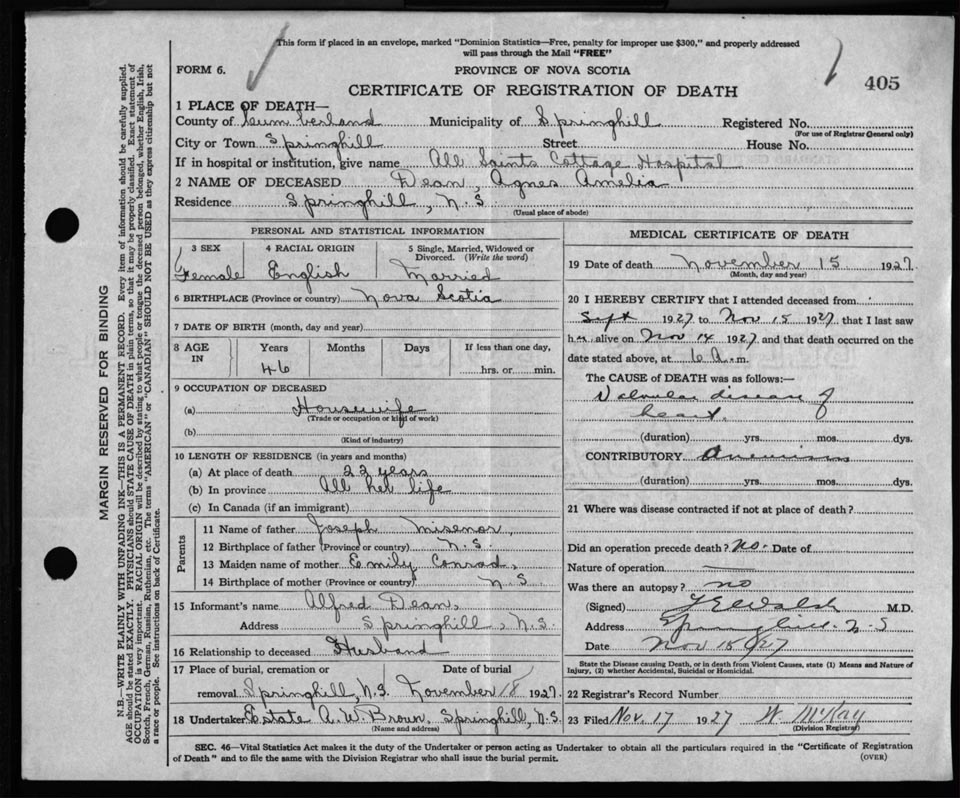 This form if placed in an envelope, marked "Dominion Statistics—Free, penalty for improper use $300," and properly addressed
will pass through the Mail "FREE"
FORM 6. PROVINCE OF NOVA SCOTIA 405
CERTIFICATE OF REGISTRATION OF DEATH
1 PLACE OF DEATH—
County of Cumberland Municipality of Springhill Registered No.
(For use of Registrar General only)
City or Town Springhill Street House No.
If in hospital or institution, give name All Saints Cottage Hospital
2 NAME OF DECEASED Dean, Agnes Amelia
Residence Springhill, N.S.
(Usual place of abode)
PERSONAL AND STATISTICAL INFORMATION
3 SEX 4 RACIAL ORIGIN 5 Single, Married, Widowed or
Divorced. (Write the word)
Female English Married
6 BIRTHPLACE (Province or country) Nova Scotia
7 DATE OF BIRTH (month, day and year)
8 AGE IN Years Months Days If less than one day,
46 hrs. or min.
9 OCCUPATION OF DECEASED
(a) Housewife
(Trade or occupation or kind of work)
(b)
(Kind of industry)
10 LENGTH OF RESIDENCE (in years and months)
(a) At place of death 22 years
(b) In province All her life
(c) In Canada (if an immigrant)
Parents
11 Name of father Joseph Misenor
12 Birthplace of father (Province or country) N.S.
13 Maiden name of mother Emily Conrad,
14 Birthplace of mother (Province or country) N S
15 Informant's name Alfred Dean,
Address Springhill, N.S.
16 Relationship to deceased Husband
17 Place of burial, cremation or Date of burial
removal Springhill, N.S. November 18 1927.
18 Undertaker Estate A. W. Brown, Springhill, N.S.
(Name and address)
MEDICAL CERTIFICATE OF DEATH
19 Date of death November 15 1927
(Month, day and year)
20 I HEREBY CERTIFY that I attended deceased from
Sept 1927 to Nov 15 1927, that I last saw
her alive on Nov 14 1927, and that death occurred on the
date stated above, at 6 A.m.
The CAUSE OF DEATH was as follows:—
Valvular disease of
heart
(duration) yrs. mos. dys.
CONTRIBUTORY
(duration) yrs. mos. dys.
21 Where was disease contracted if not at place of death?
Did an operation precede death? No. Date of
Nature of operation
Was there an autopsy? no
(Signed) Walsh M.D.
Address Springhill N-S
Date Nov 18/27
State the Disease causing Death, or in death from Violent Causes, state (1) Means and Nature of
Injury, (2) whether Accidental, Suicidal or Homicidal.
22 Registrar's Record Number
23 Filed Nov. 17 1927 W. McKay
(Division Registrar)
SEC. 46—Vital Statistics Act makes it the duty of the Undertaker or person acting as Undertaker to obtain all the particulars required in the "Certificate of Registration
of Death" and to file the same with the Division Registrar who shall issue the burial permit. (OVER)
MARGIN RESERVED FOR BINDING
N.B.—WRITE PLAINLY WITH UNFADING INK—THIS IS A PERMANENT RECORD. Every item of information should be carefully supplied.
AGE should be stated EXACTLY. PHYSICIANS should STATE CAUSE OF DEATH in plain terms, so that it may be properly classified. Exact statement of
OCCUPATION is very important. RACIAL ORIGIN will be described by stating to what people or tongue the deceased person belonged, whether English, Irish,
Scotch, French, German, Russian, Ruthenian, etc. The terms "AMERICAN" or "CANADIAN" SHOULD NOT BE USED as they express citizenship but not
a race or people. See instructions on back of Certificate.